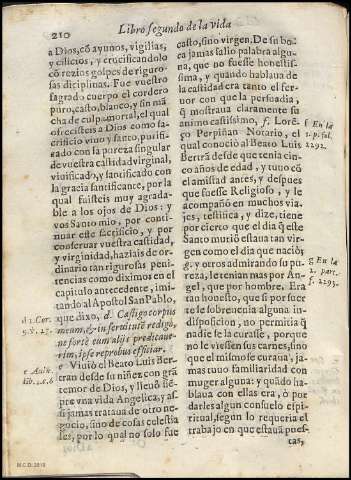 210
Libro segundo de la vida
a Dios, cõ ayunos, vigilias,
y cilicios, y crucificandolo
cõ rezios golpes de riguro-
sas diciplinas. Fue vuestro
sagrado cuerpo el cordero
puro, casto, blanco, y sin mã
cha de culpa mortal, el qual
ofrecisteis a Dios como sa-
crificio vivo y santo, purifi-
cado con la pureza singular
de vuestra castidad virginal,
viuificado, y santificado con
la gracia santificante, por la
qual fuisteis muy agrada-
ble a los ojos de Dios: y
vos Santo mio, por conti-
nuar este sacrificio, y por
conseruar vuestra castidad,
y virginidad, haziais de or-
dinario tan rigurosas peni-
tencias como diximos en el
capitulo antecedente, imi-
tando al Apostol San Pablo,
que dixo, d. Castigo corpus
meum, & in seruitutẽ redigo,
ne fortè cum alijs predicaue-
rim, ipse reprobus efficiar.
e Viuiò el Beato Luis Ber-
tran desde su niñez con grã
temor de Dios, y lleuò siẽ-
pre vna vida Angelica, y as-
si jamas trataua de otro ne-
gocio, sino de cosas celestia
les, por lo qual no solo fue
d 1. Cor.
9. v. 27.
e Aulti.
lib. 2. c. 6
casto, sino virgen. De su bo-
ca jamas salio palabra algu-
na, que no fuesse honestis-
sima, y quando hablaua de
la castidad era tanto el fer-
uor con que la persuadia,
q̃ mostraua claramente su
animo castissimo, f. Lorẽ-
ço Perpiñan Notario, el
qual conociò al Beato Luis
Bertrã desde que tenia cin-
co años de edad, y tuuo cõ
el amistad antes, y despues
que fuesse Religioso, y le
acompañò en muchos via-
jes, testifica, y dize, tiene
por cierto que el dia q̃ este
Santo muriò estaua tan vir-
gen como el dia que naciò,
g. y otros admirando su pu-
reza, le tenian mas por An-
gel, que por hombre. Era
tan honesto, que si por suer-
te se sobrevenia alguna in-
disposicion, no permitia q̃
nadie se la curasse, porque
no le viessen sus carnes, sino
que el mismo se curaua, ja-
mas tuuo familiaridad con
muger alguna: y quãdo ha-
blaua con ellas era, ò por
darles algun consuelo espi-
ritual, segun lo requeria el
trabajo en que estauã pues-
tas,
f En la
1. p. sul.
2292.
g En la
2. parr.
f. 2293.
M.C.D. 2018